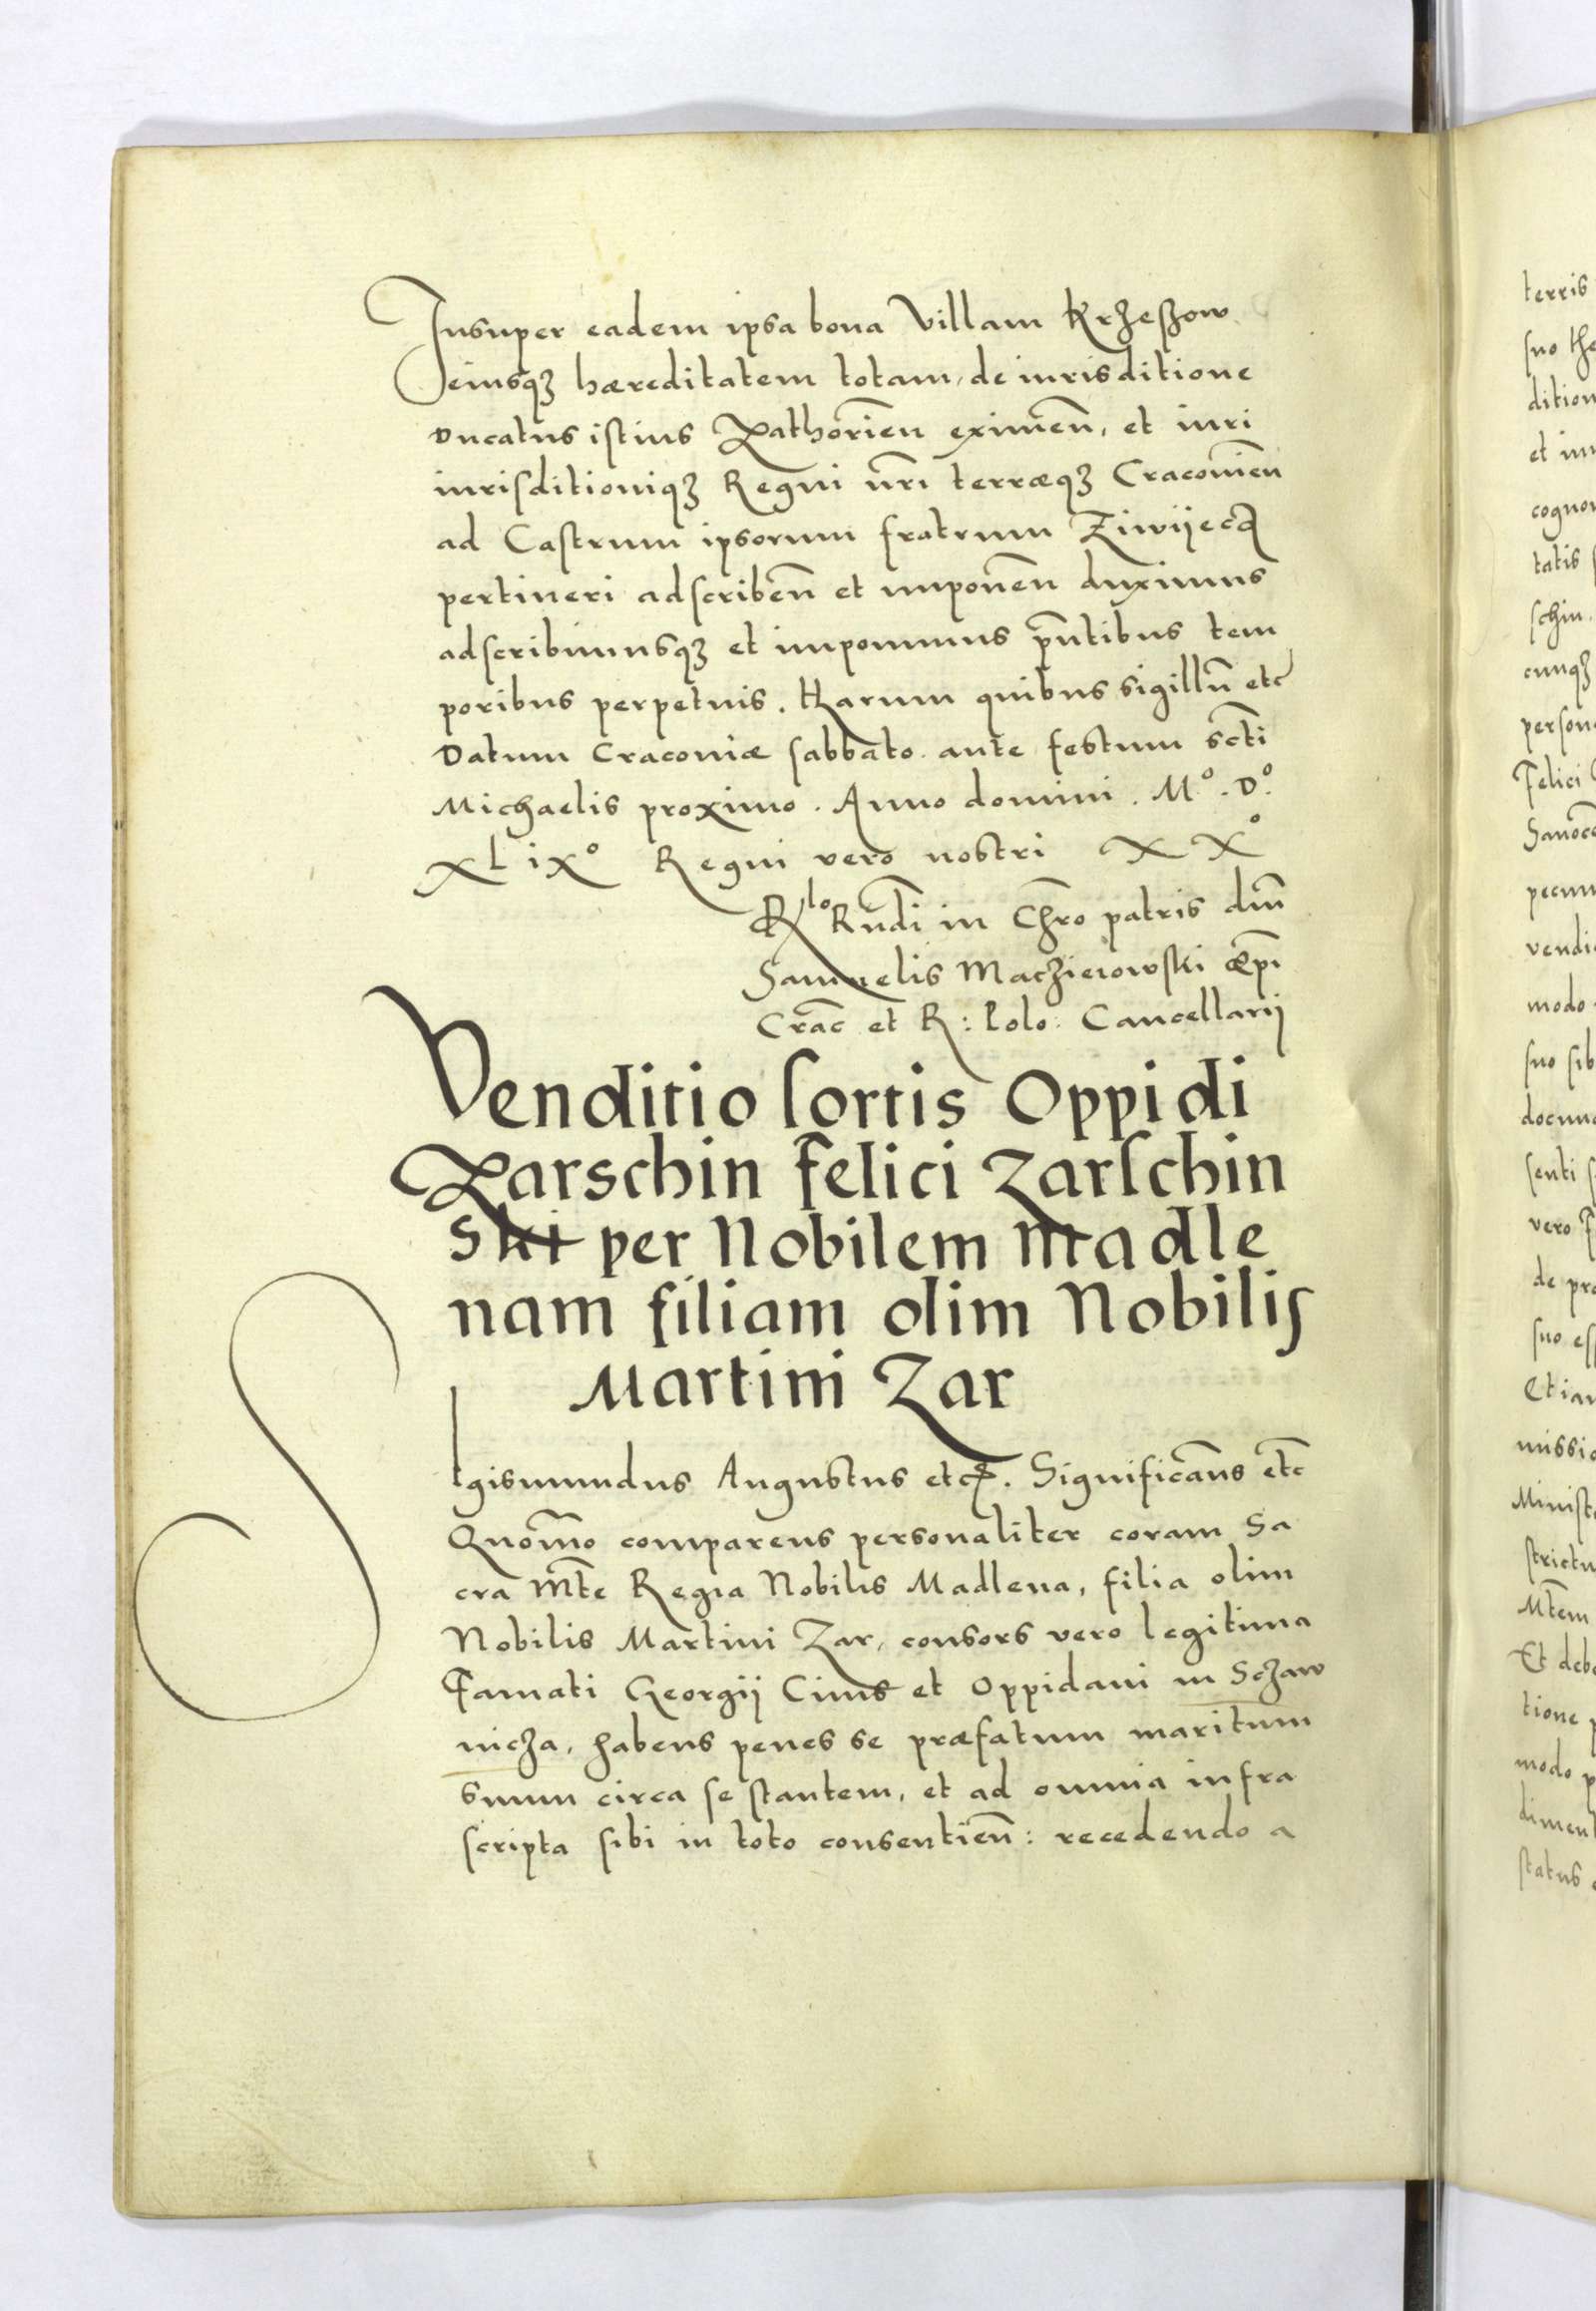 Insuper eadem ipsa bona Villam Krzeszow
eiusqꝫ hæreditatem totam, de iurisditione
Ducatus istius Zathorieñ eximeñ, et iuri
iurisditioniqꝫ Regni nr̃i terræqꝫ Cracovieñ
ad Castrum ipsorum fratrum Ziwijecꝫ
pertineri adscribeñ et imponeñ duximus
adscribimusqꝫ et imponimus pñtibus tem
poribus perpetuis. Harum quibus sigillũ etc̃
Datum Cracoviæ sabbato ante festum scti̅
Michaelis proximo. Anno domini. M.º D.º
XLixº Regni vero nostri XXº
Rlo Rñdi in Chr̃o patris dñi
Samuelis Maczieiowski Ep̃i
Crac̃ et R: Polo: Cancellarij
Venditio sortis Oppidi
Zarschin felici Zarschin
ski per Nobilem Madle
nam filiam olim Nobilis
Martini Zar
Sigismundus Augustus etc. Significam̃s etc̃
Quom̃o comparens personaliter coram Sa
cra Mt̃e Regia Nobilis Madlena, filia olim
Nobilis Martini Zar, consors vero legitima
Famati Georgij Civis et Oppidani in Sczaw
nicza, habens penes se præfatum maritum
suum circa se stantem, et ad omnia infra
scripta sibi in toto consentieñ: recedendo a
terris
suo the
dition
cogno
tatis
schin.
cunqꝫ
person
Felici
pecun
vendi
modo
suo sib
docum
senti
vero
de pr
suo ess
Etiam
missio
strictu
Mt̃em
Et deb
tione
modo p
dimen
status